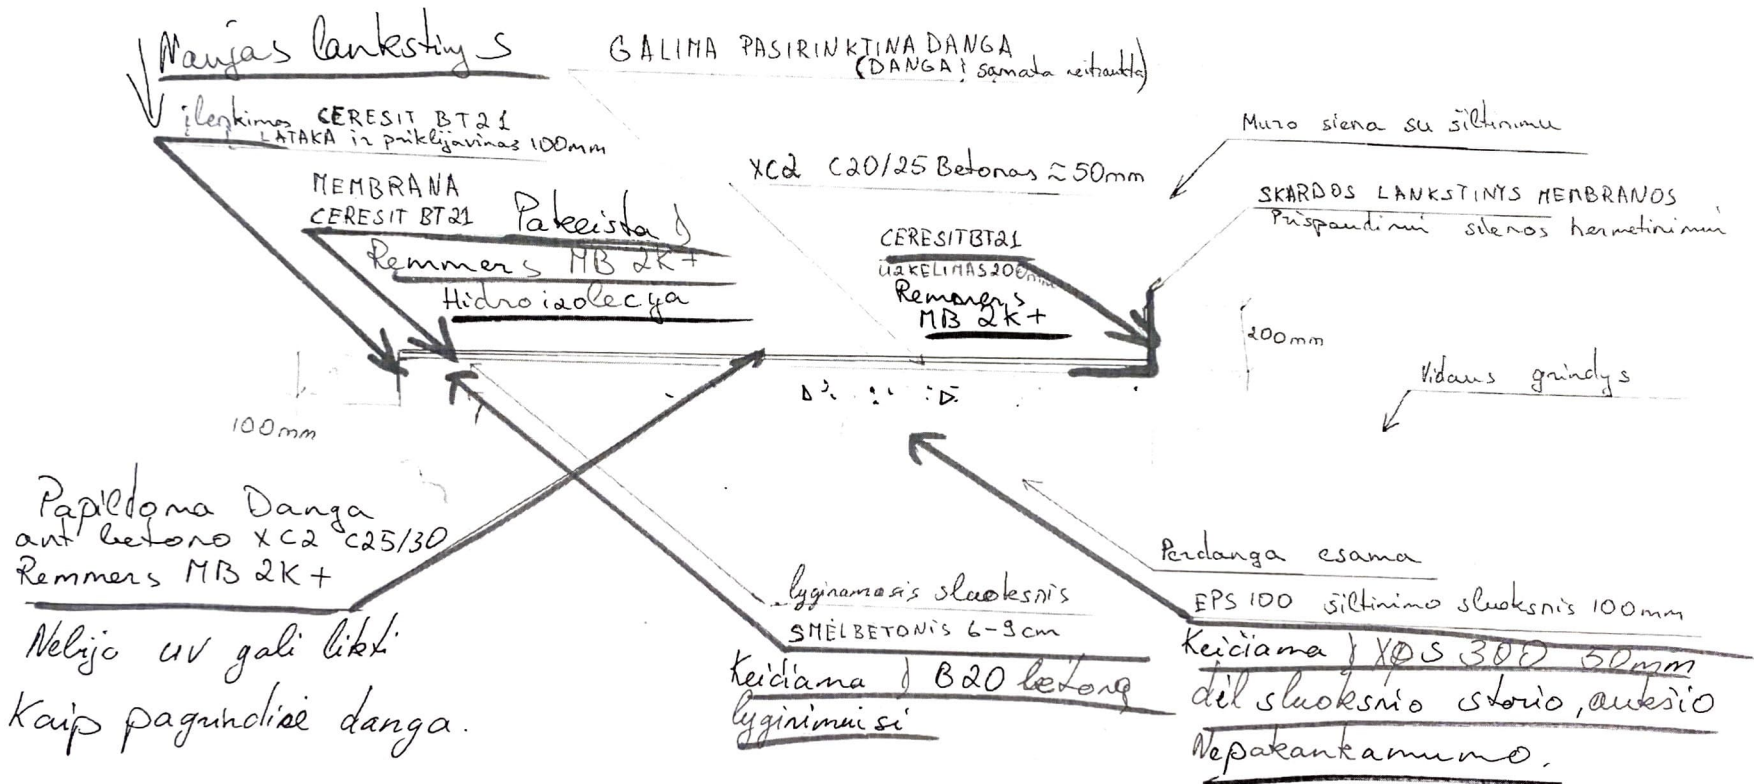 Naujas lankstinys
GALIMA PASIRINKTINA DANGA
(DANGA Į sąmata neįtraukta)
įlenkimas CERESIT BT21
LATAKĄ ir priklijavimas 100mm
MEMBRANA
CERESIT BT21 Pakeista Į
Remmers MB 2K+
Hidroizolecya
XC2 C20/25 Betonas ≈ 50mm
CERESIT BT21
UŽKELIMAS 200mm
Remmers
MB 2K+
Muro siena su šiltinimu
SKARDOS LANKSTINYS MEMBRANOS
Prispaudimui sienos hermetinimui
200mm
Vidaus grindys
100mm
Papildoma Danga
ant betono XC2 C25/30
Remmers MB 2K+
Nebijo uv gali likti
Kaip pagrindinė danga.
lyginamasis sluoksnis
SMĖLBETONIS 6-9cm
Keičiama Į B20 betoną
lyginimuisi
Perdanga esama
EPS 100 šiltinimo sluoksnis 100mm
Keičiama Į XPS 300 50mm
dėl sluoksnio storio, aukščio
Nepakankamumo.